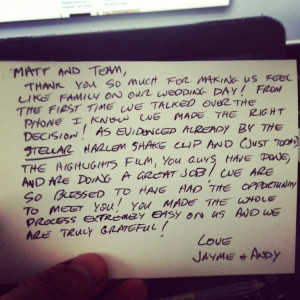 MATT AND TEAM,
THANK YOU SO MUCH FOR MAKING US FEEL
LIKE FAMILY ON OUR WEDDING DAY! FROM
THE FIRST TIME WE TALKED OVER THE
PHONE I KNOW WE MADE THE RIGHT
DECISION! AS EVIDENCED ALREADY BY THE
STELLAR HARLEM SHAKE CLIP AND (JUST TODAY)
THE HIGHLIGHTS FILM, YOU GUYS HAVE DONE,
AND ARE DOING A GREAT JOB! WE ARE
SO BLESSED TO HAVE HAD THE OPPORTUNITY
TO MEET YOU! YOU MADE THE WHOLE
PROCESS EXTREMELY EASY ON US AND WE
ARE TRULY GRATEFUL!
LOVE
JAYME + ANDY